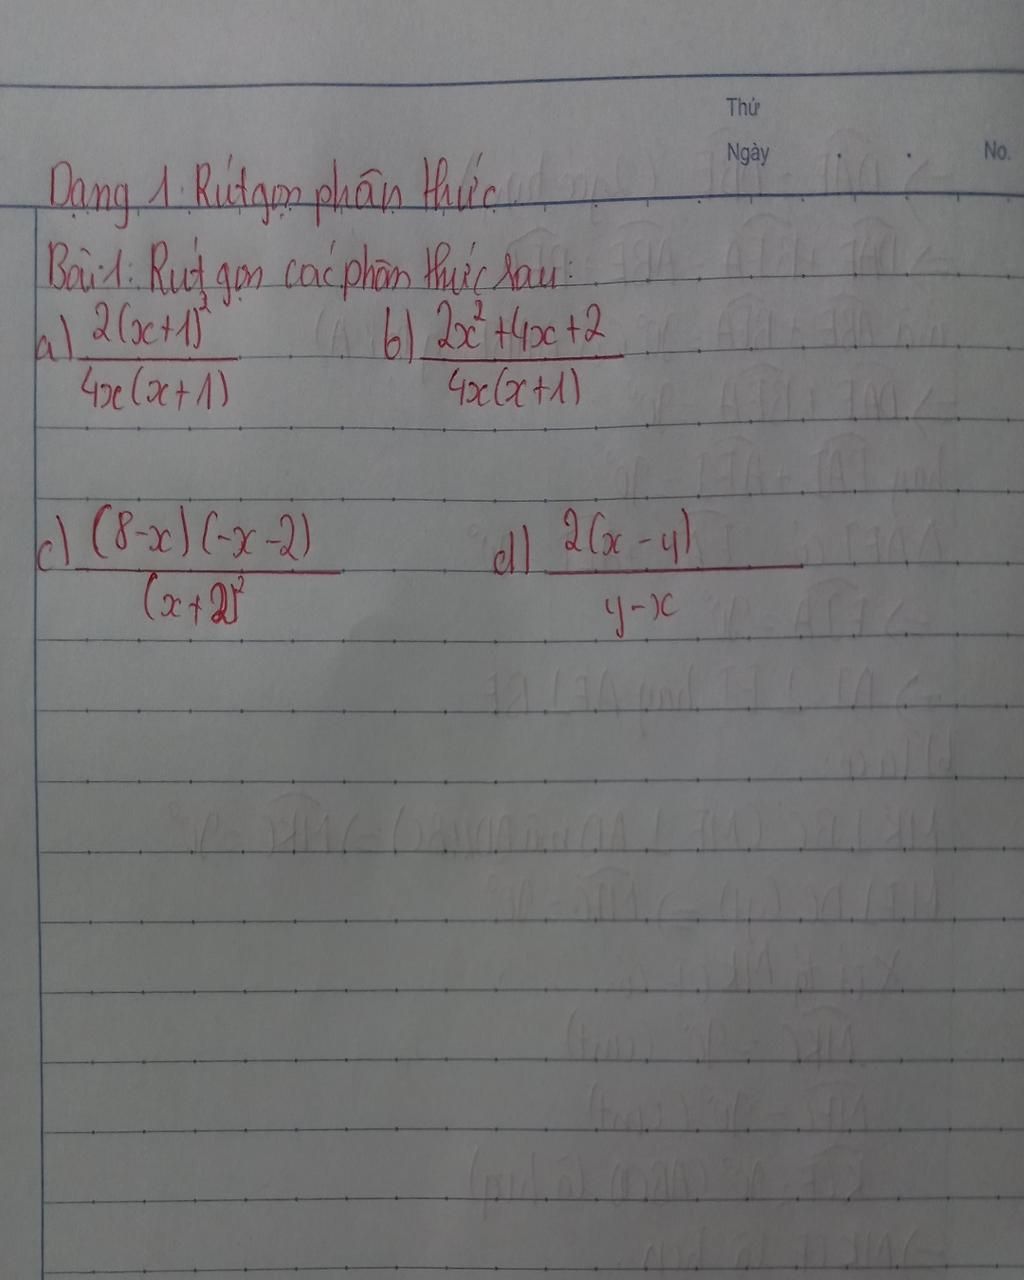 Thứ
Ngày . . No.
Dạng 1: Rút gọn phân thức
Bài 1: Rút gọn các phân thức sau:
a) 2(x+1)² / 4x(x+1) b) 2x²+4x+2 / 4x(x+1)
c) (8-x)(-x-2) / (x+2)² d) 2(x-y) / y-x